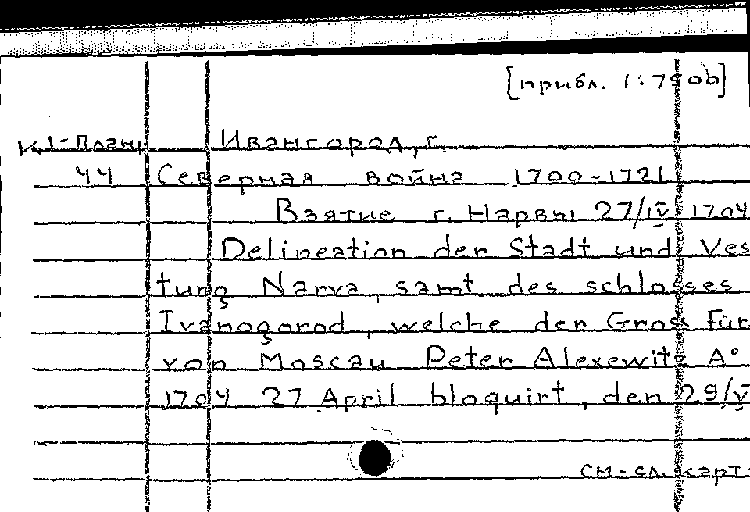 [прибл. 1:7900]
К1-Планы Ивангород, г.
44 Северная война 1700-1721
Взятие г. Нарвы 27/IV 1704
Delineation der Stadt und Ves
tung Narva, samt des schlosses
Ivanogorod, welche der Gros Für
von Moscau Peter Alexewitz A°
1704 27 April bloquirt, den 29/V
см. сл. карт.